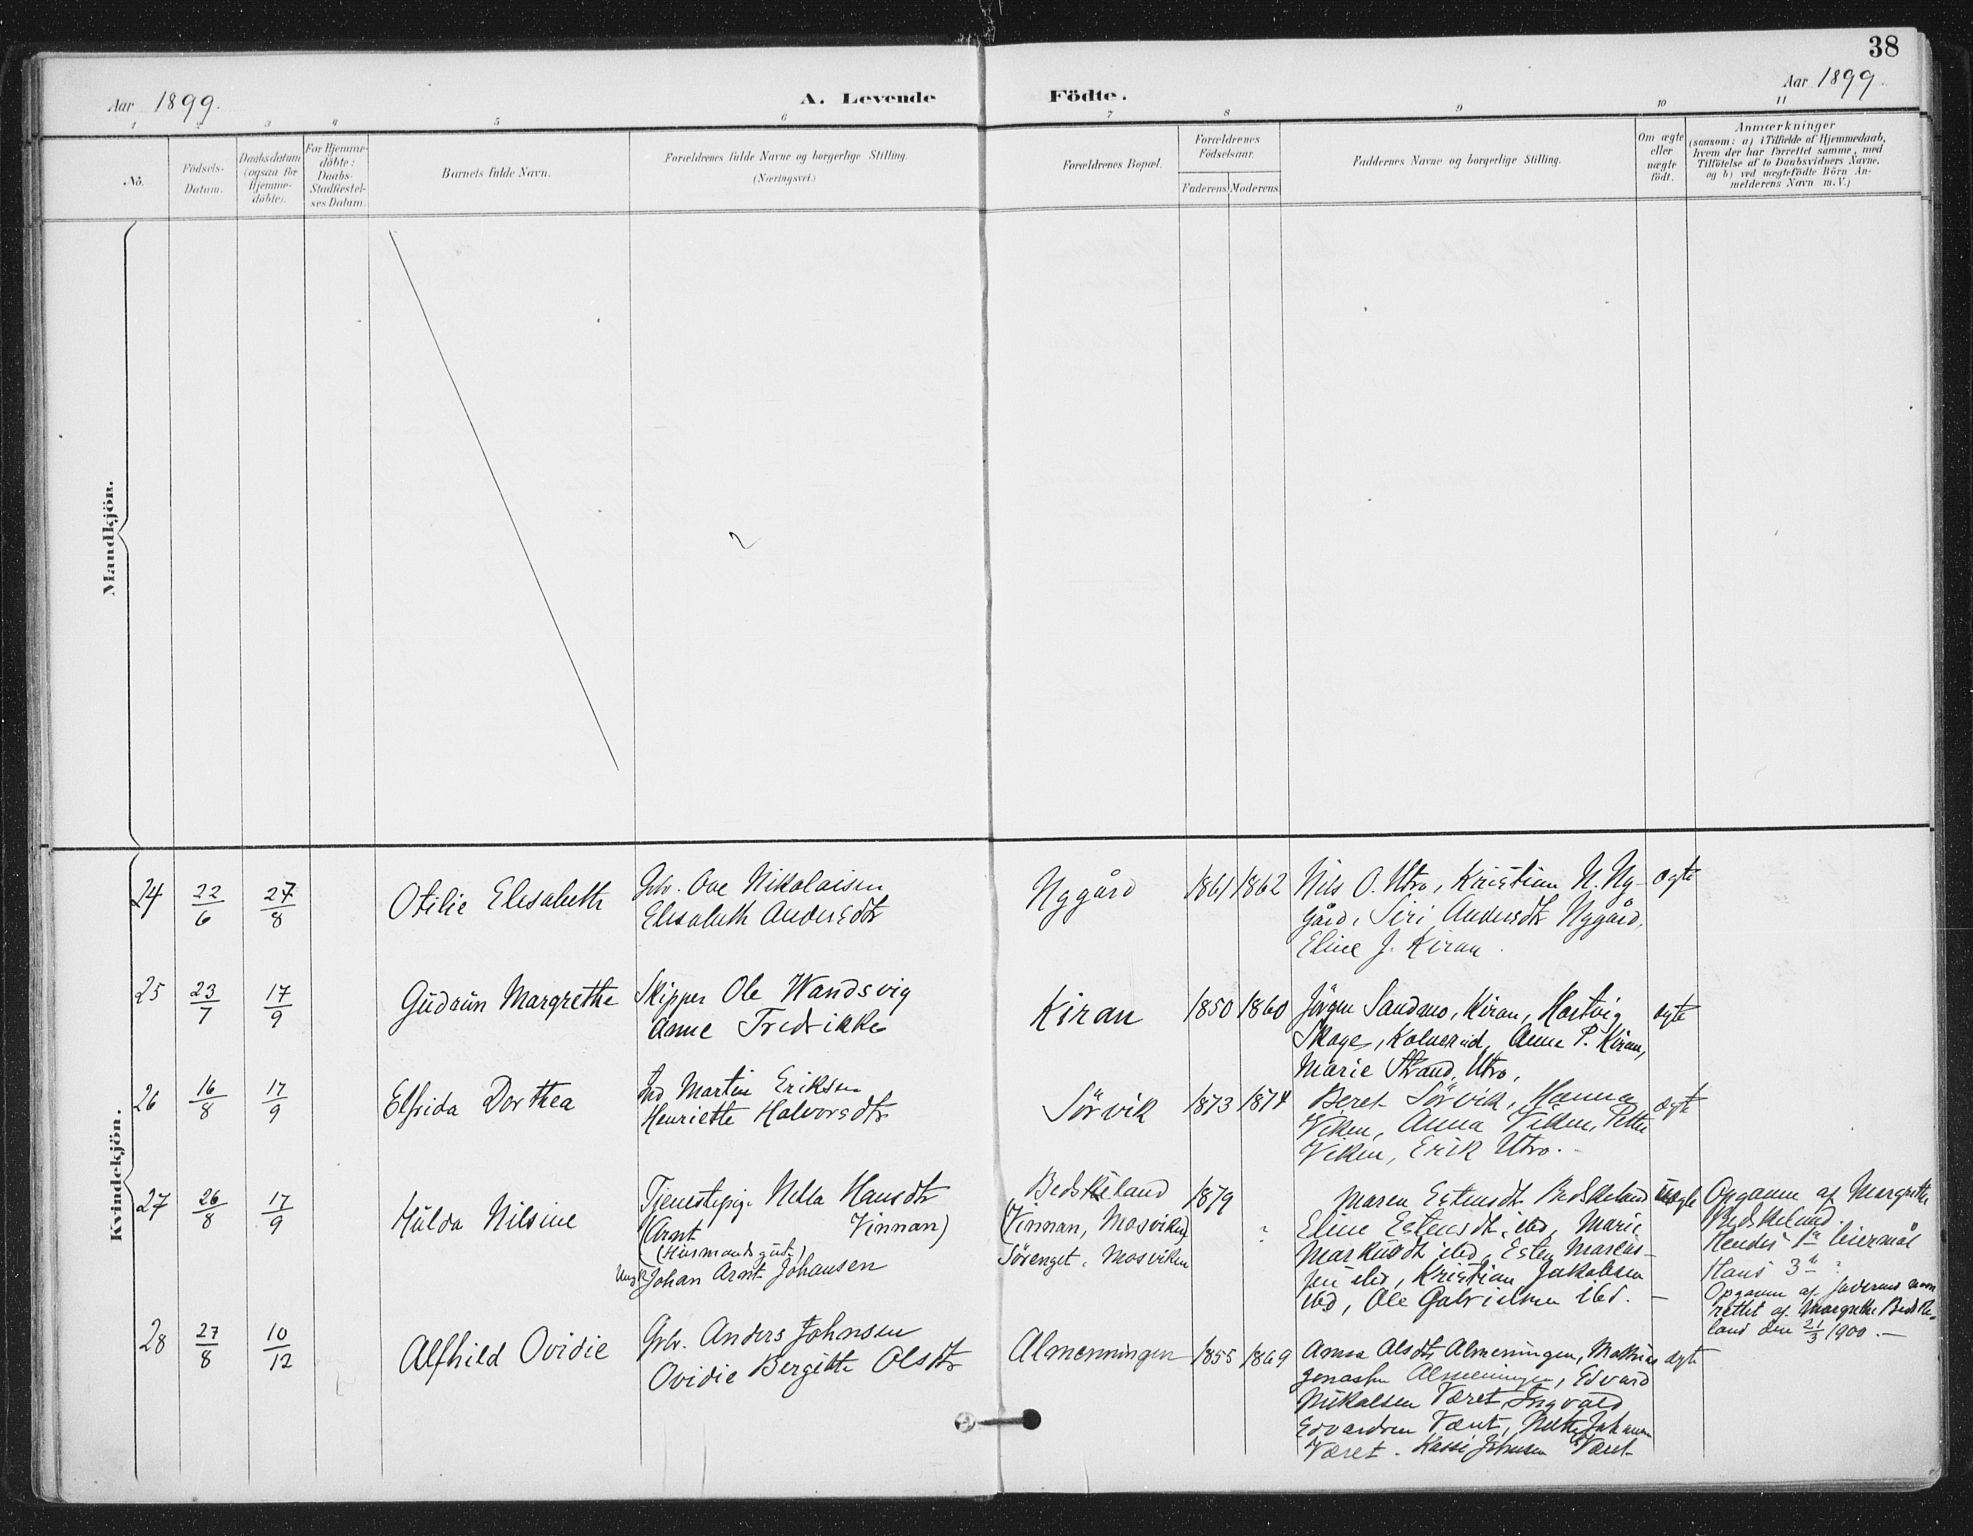 38
Aar 1899.
A. Levende
Födte.
Aar 1899.
1 2 3 4 5 6 7 8 9 10 11
No.
Födsels-
Datum.
Daabsdatum
(ogsaa for
Hjemme-
döbte).
For Hjemme-
döbte:
Daabs-
Stadfæstel-
ses Datum.
Barnets fulde Navn.
Forældrenes fulde Navne og borgerlige Stilling.
(Næringsvei.)
Forældrenes Bopæl.
Forældrenes
Födselsaar.
Faderens. Moderens.
Faddernes Navne og borgerlige Stilling.
Om ægte
eller
uægte
födt.
Anmærkninger
(saasom: a) i Tilfælde af Hjemmedaab,
hvem der har forrettet samme, med
Tilföielse af to Daabsvidners Navne,
og b) ved uægtefödte Börn An-
melderens Navn m.V.)
Mandkjön.
Kvindekjön.
24 22/6 27/8 Otilie Elisabeth
Gbr. Ove Nikolaisen
Elisabeth Andersdtr
Nygård 1861 1862
Nils O. Utro, Kristian N. Ny-
gård, Siri Andersdtr Nygård,
Eline J. Kiran.
ægte
25 23/7 17/9 Gudrun Margrethe
Skipper Ole Wandsvig
Anne Fredrikke
Kiran 1850 1860
Jörgen Sandmo, Kiran, Hartvig
Skage, Anne P. Kiran,
Marie Strand, Utro,
ægte
26 16/8 17/9 Elfrida Dorthea
Ind Martin Eriksen
Henriette Halvorsdtr
Sörvik 1873 1874
Beret Sörvik, Hanna
Viken, Anna Viken, Petter
Viken, Erik Utro.
ægte
27 26/8 17/9 Hulda Nilsine
Tjenestepige Nella Hansdtr
(Arnt Vinnan)
(Husmandsgut)
Ungk. Johan Arnt Johansen
Bedskeland
(Vinnan, Mosviken)
Sörenget, Mosviken
1879 ?
Maren Estensdtr Bedskeland
Eline Estensdtr, ibd, Marie
Markusdtr ibd, Esten Markus-
sen ibd, Kristian Jakobsen
ibd, Ole Gabrielsen ibd. —
uægte
Opgaven af Margrethe
Bedskeland.
Hendes 1ste leiermål
Hans 3de ?
Opgaven af faderens navn
rettet af Margrethe Bedske-
land den 21/3 1900. —
28 27/8 10/12 Alfhild Ovidie
Gbr. Anders Johnsen
Ovidie Bergitte Olsdtr
Almenningen 1855 1869
Anna Olsdtr Almenningen, Mathias
Jonassen Almenningen, Edvard
Nikolaisen Været, Ingvald
Edvardsen Været,
Været. Johnsen Været
ægte